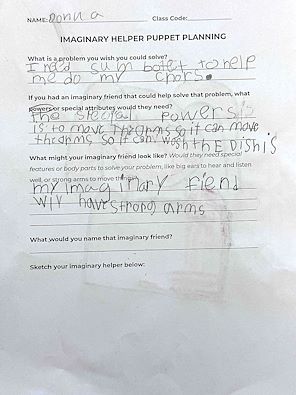 NAME: Donna Class Code:
IMAGINARY HELPER PUPPET PLANNING
What is a problem you wish you could solve?
I need sum botet to help
me do my chors.
If you had an imaginary friend that could help solve that problem, what
powers or special attributes would they need?
The special powers is
is to move the arms so it can move
the arms so it can wosh thE Dishis
What might your imaginary friend look like? Would they need special
features or body parts to solve your problem, like big ears to hear and listen
well, or strong arms to move things?
my imaginary fiend
wiy have strong arms
What would you name that imaginary friend?
Sketch your imaginary helper below: